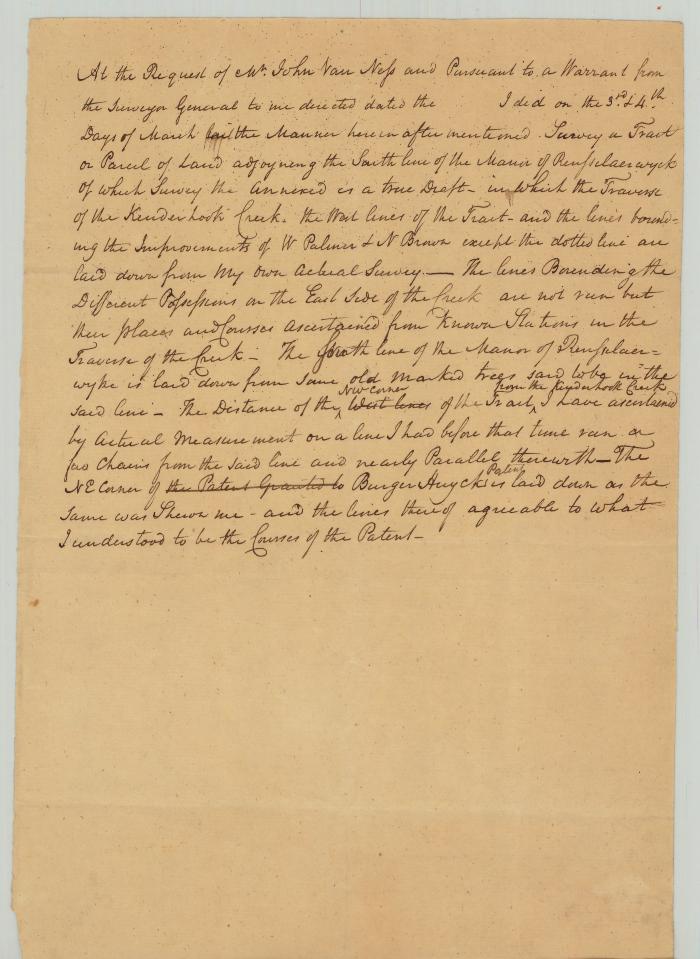 At the Request of Mr. John Van Ness and Pursuant to a Warrant from
the Surveyor General to me directed dated the I did on the 3rd & 4th
Days of March the Manner herein after mentioned Survey a Tract
or Parcel of Land adjoyning the South line of the Manor of Rensselaerwyck
of which Survey the Annexed is a true Draft - in which the Traverse
of the Kenderhook Creek. the West lines of the Tract - and the lines bound=
ing the Improvements of W Palmer & N Brown except the dotted line are
laid down from My own Actual Survey. — The lines Bounding the
Different Possessions on the East Side of the Creek are not run but
their places and Courses ascertained from Known Stations in the
Traverse of the Creek - The South line of the Manor of Rensselaer=
wyke is laid down from some old Marked trees said to be in the
said line - The Distance of the NW Corner West lines of the Tract, from the Kinderhook Creek I have ascertained
by Actual Measurement on a line I had before that time run a
few Chains from the said line and nearly Parallel therewith - The
NE Corner of the Patent Granted to Burger Huycks Patent is laid down as the
same was Shewn me - and the lines thereof agreeable to what
I understood to be the Courses of the Patent -